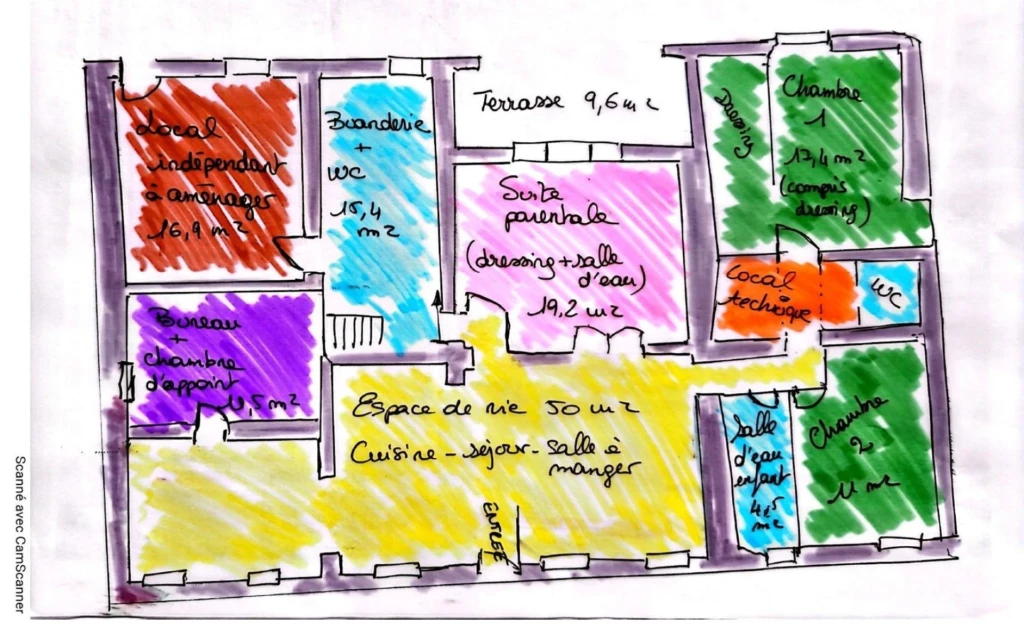 Local
indépendant
à aménager
16,9 m²
Buanderie
+
WC
15,4
m²
Terrasse 9,6 m²
Suite
parentale
(dressing + salle
d'eau)
19,2 m²
Dressing
Chambre
1
(compris
dressing)
Local
technique
WC
Bureau
+
chambre
d'appoint
Espace de vie 50 m²
Cuisine - séjour - salle à
manger
ENTREE
Salle
d'eau
enfant
m²
Chambre
2
11 m²
Scanné avec CamScanner